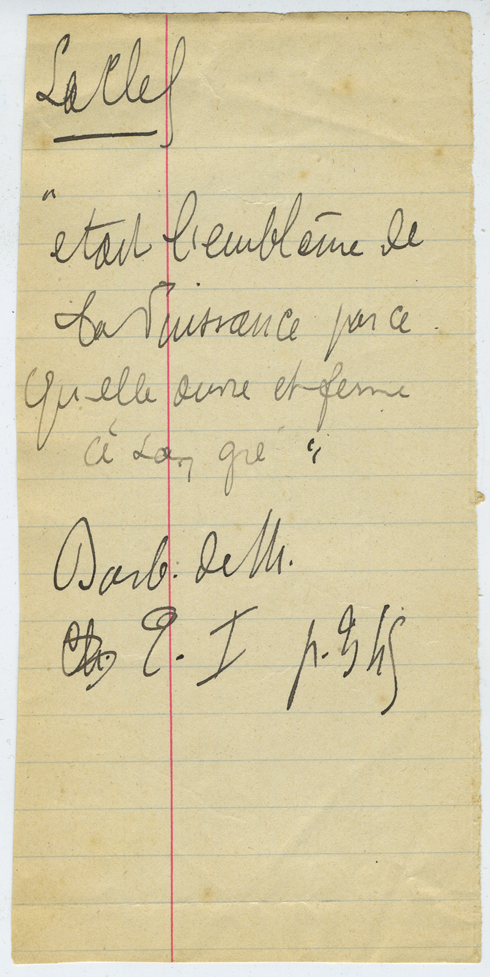 La Clef
"était l'emblême de
la Puissance parce
qu'elle ouvre et ferme
à son gré"
Barb. de M.
T. I p.